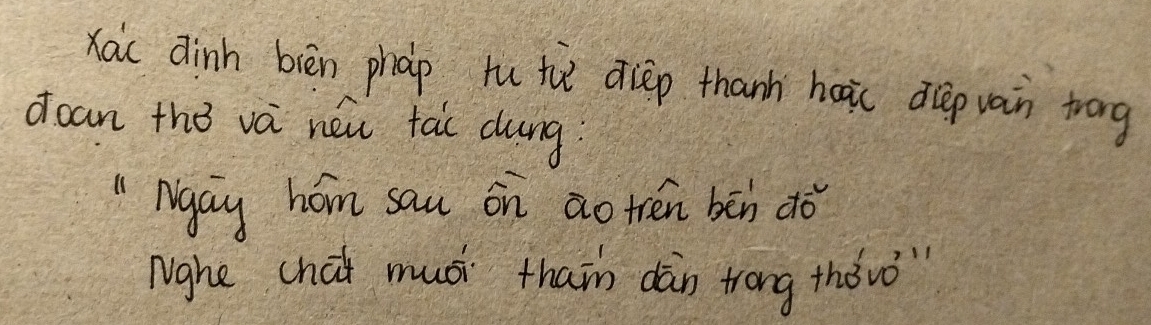 Xác định biện pháp tu từ điệp thanh hoặc điệp vần trong
đoạn thơ và nêu tác dụng:
"Ngày hôm sau ồn ào trên bến đỗ
Nghe chất muối thấm dần trong thớ vỏ"